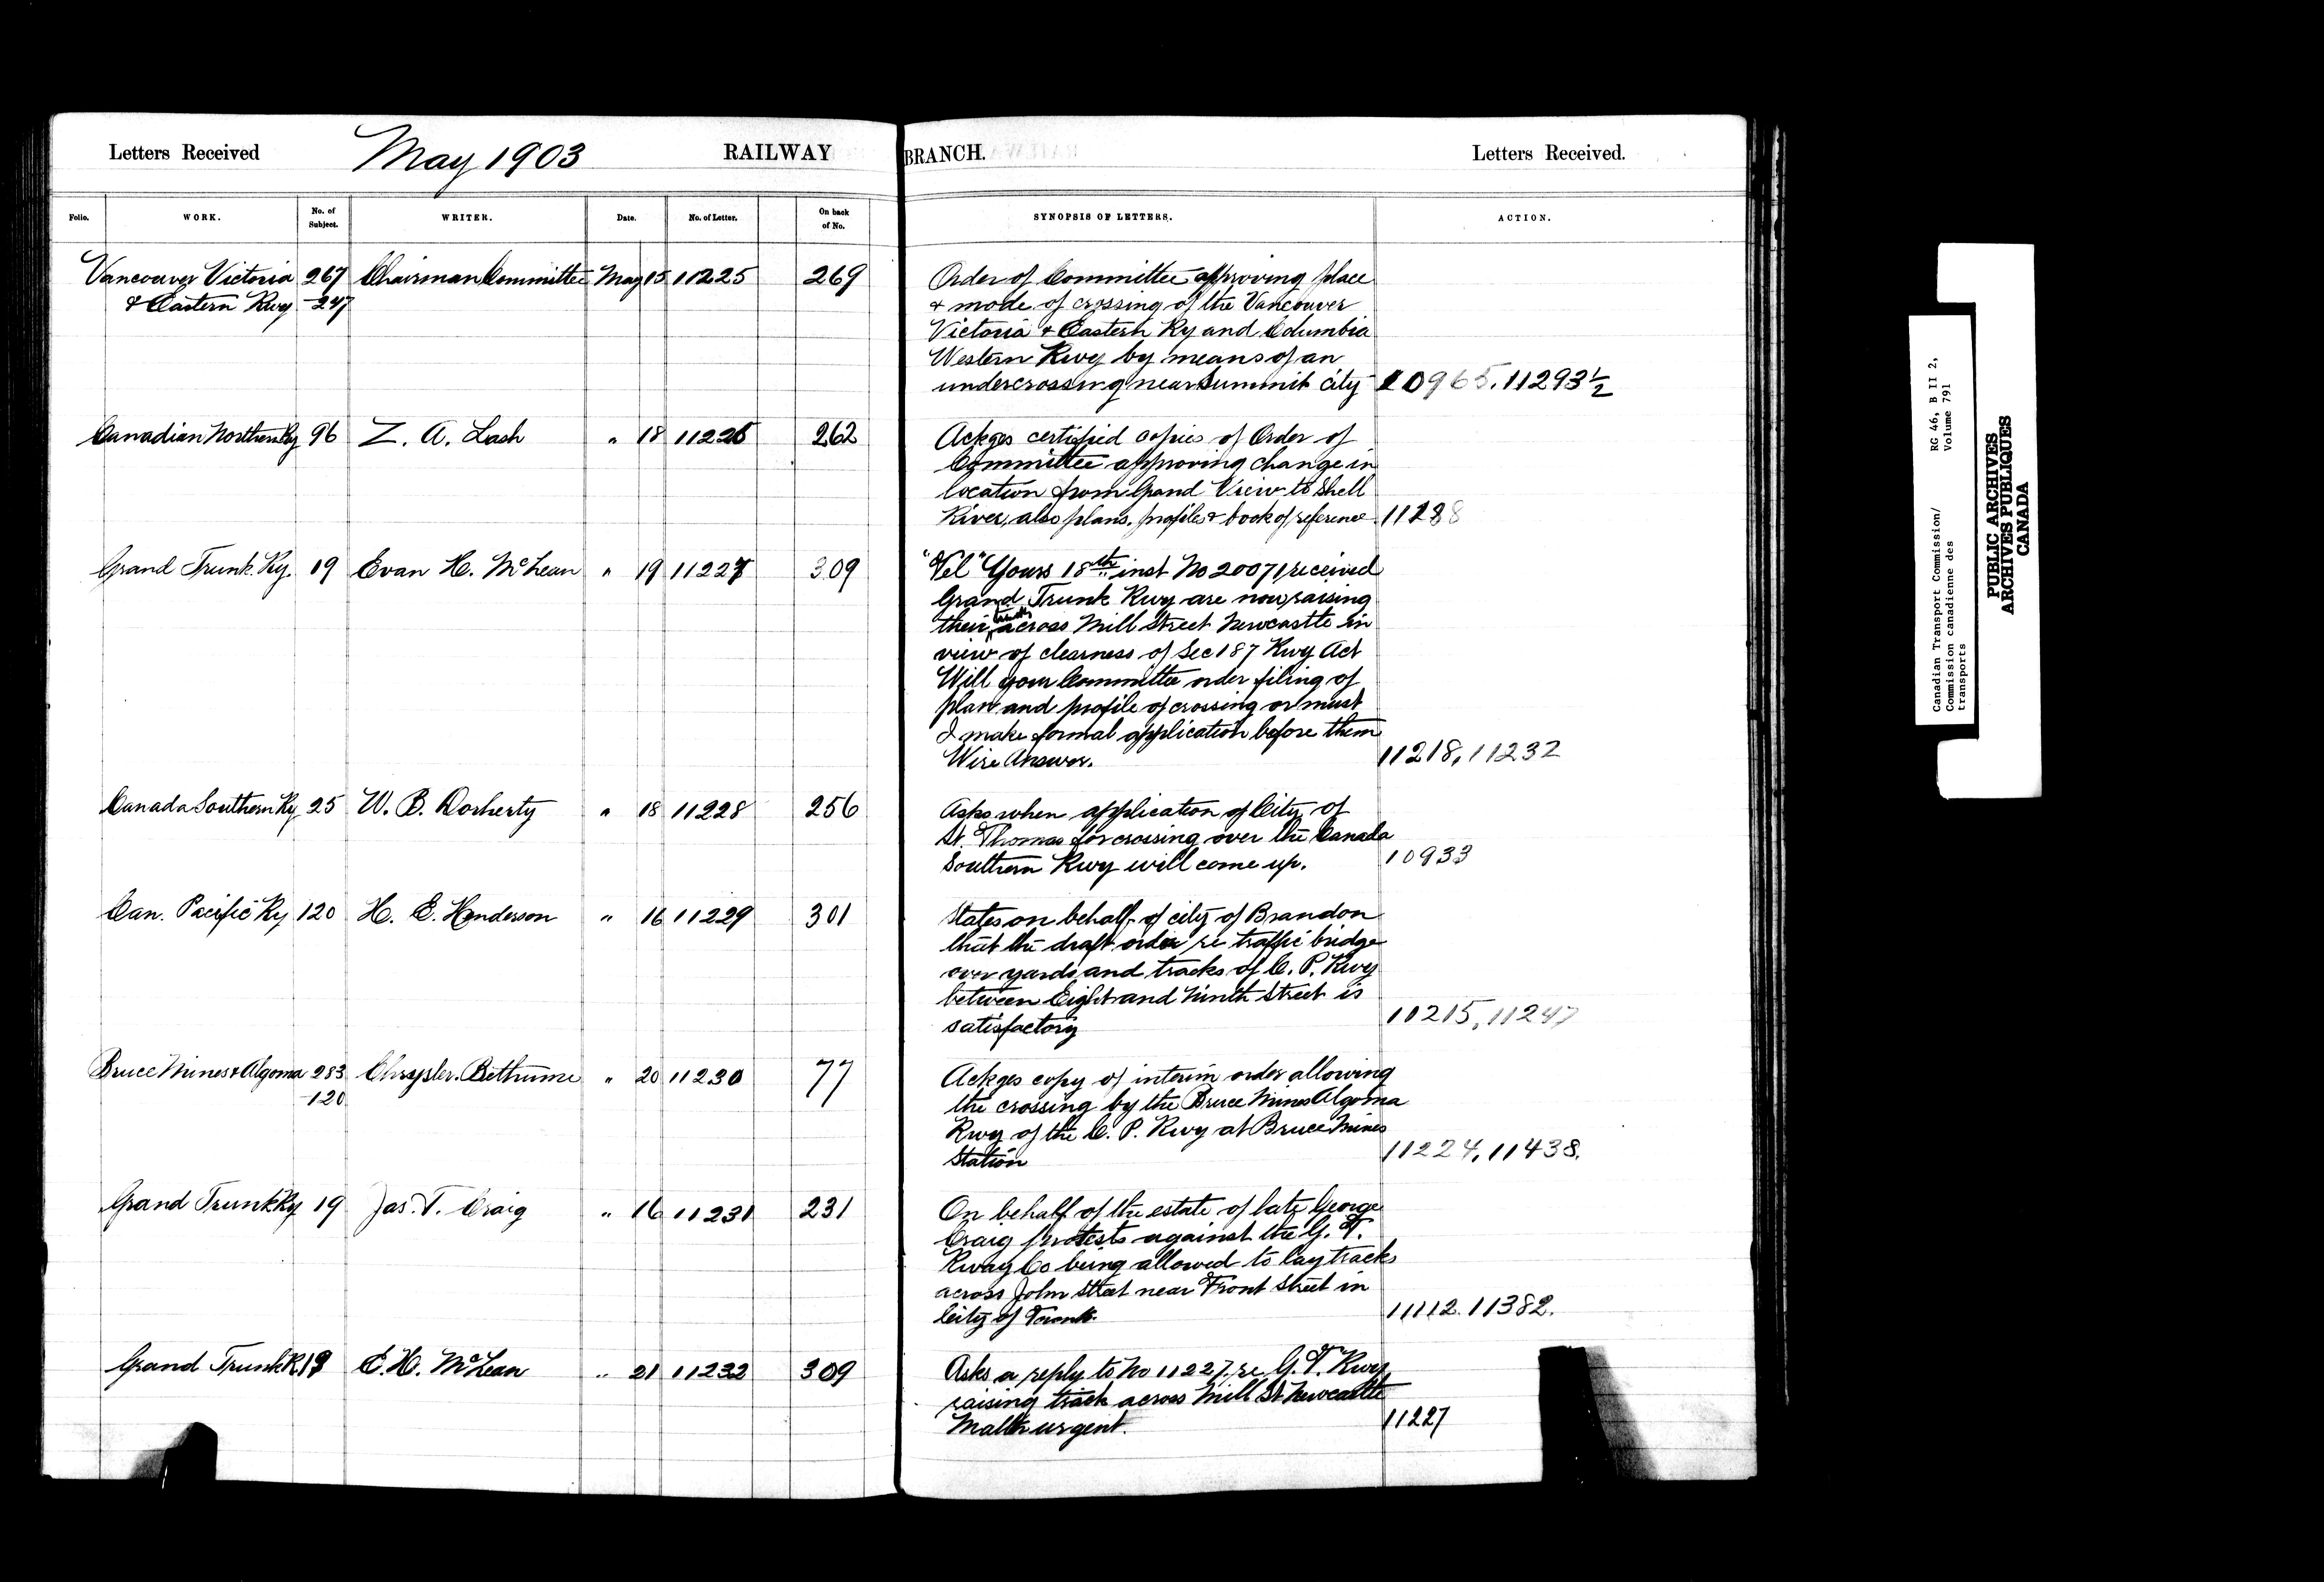 Letters Received May 1903 RAILWAY BRANCH. Letters Received.
Folio. WORK. No. of Subject. WRITER. Date. No. of Letter. On back of No. SYNOPSIS OF LETTERS. ACTION.
Vancouver Victoria 267 Chairman Committee May 15 11225 269 Order of Committee approving place
& Eastern Rwy 247 & mode of crossing of the Vancouver
Victoria & Eastern Ry and Columbia
Western Rwy by means of an
undercrossing near Summit City 10965. 11293½
Canadian Northern Ry 96 Z. A. Lash " 18 11226 262 Ackges certified copies of Order of
Committee approving change in
location from Grand View to Shell
River, also plans, profile & book of reference 11288
Grand Trunk Ry. 19 Evan H. McLean " 19 11227 309 "Tel" Yours 18th inst No 20071 received
Grand Trunk Rwy are now raising
their tracks across Mill Street Newcastle in
view of clearness of Sec 187 Rwy Act
Will your Committee order filing of
plan and profile of crossing or must
I make formal application before them
Wire Answer. 11218, 11232
Canada Southern Ry 25 W. B. Doherty " 18 11228 256 Asks when application of City of
St. Thomas for crossing over the Canada
Southern Rwy will come up. 10933
Can. Pacific Ry 120 H. E. Henderson " 16 11229 301 States on behalf of city of Brandon
that the draft order re traffic bridge
over yards and tracks of C. P. Rwy
between Eight and Ninth Street is
satisfactory 11215, 11247
Bruce Mines & Algoma 283 Chrysler. Bethune " 20 11230 77 Ackges copy of interim order allowing
120 the crossing by the Bruce Mines Algoma
Rwy of the C. P. Rwy at Bruce Mines
Station 11224, 11438.
Grand Trunk Ry 19 Jas. T. Craig " 16 11231 231 On behalf of the estate of late George
Craig protests against the G. T.
Rway Co being allowed to lay tracks
across John Street near Front Street in
City of Toronto. 11112. 11382.
Grand Trunk R 19 E. H. McLean " 21 11232 309 Asks a reply to No 11227 re G. T. Rwy
raising track across Mill St Newcastle
Matter urgent. 11227
Canadian Transport Commission/ RG 46, B II 2,
Commission canadienne des Volume 791
transports
PUBLIC ARCHIVES
ARCHIVES PUBLIQUES
CANADA